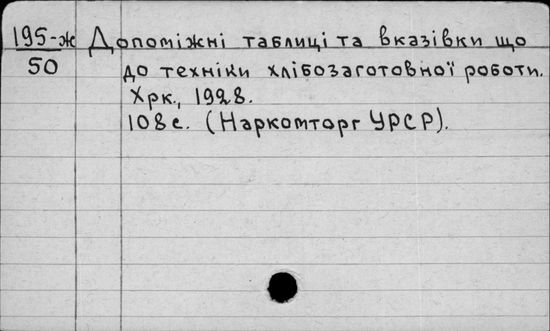 195-ж Допоміжні таблиці та вказівки що
50 до техніки хлібозаготовної роботи.
Хрк., 1928.
108 с. (Наркомторг УРСР).